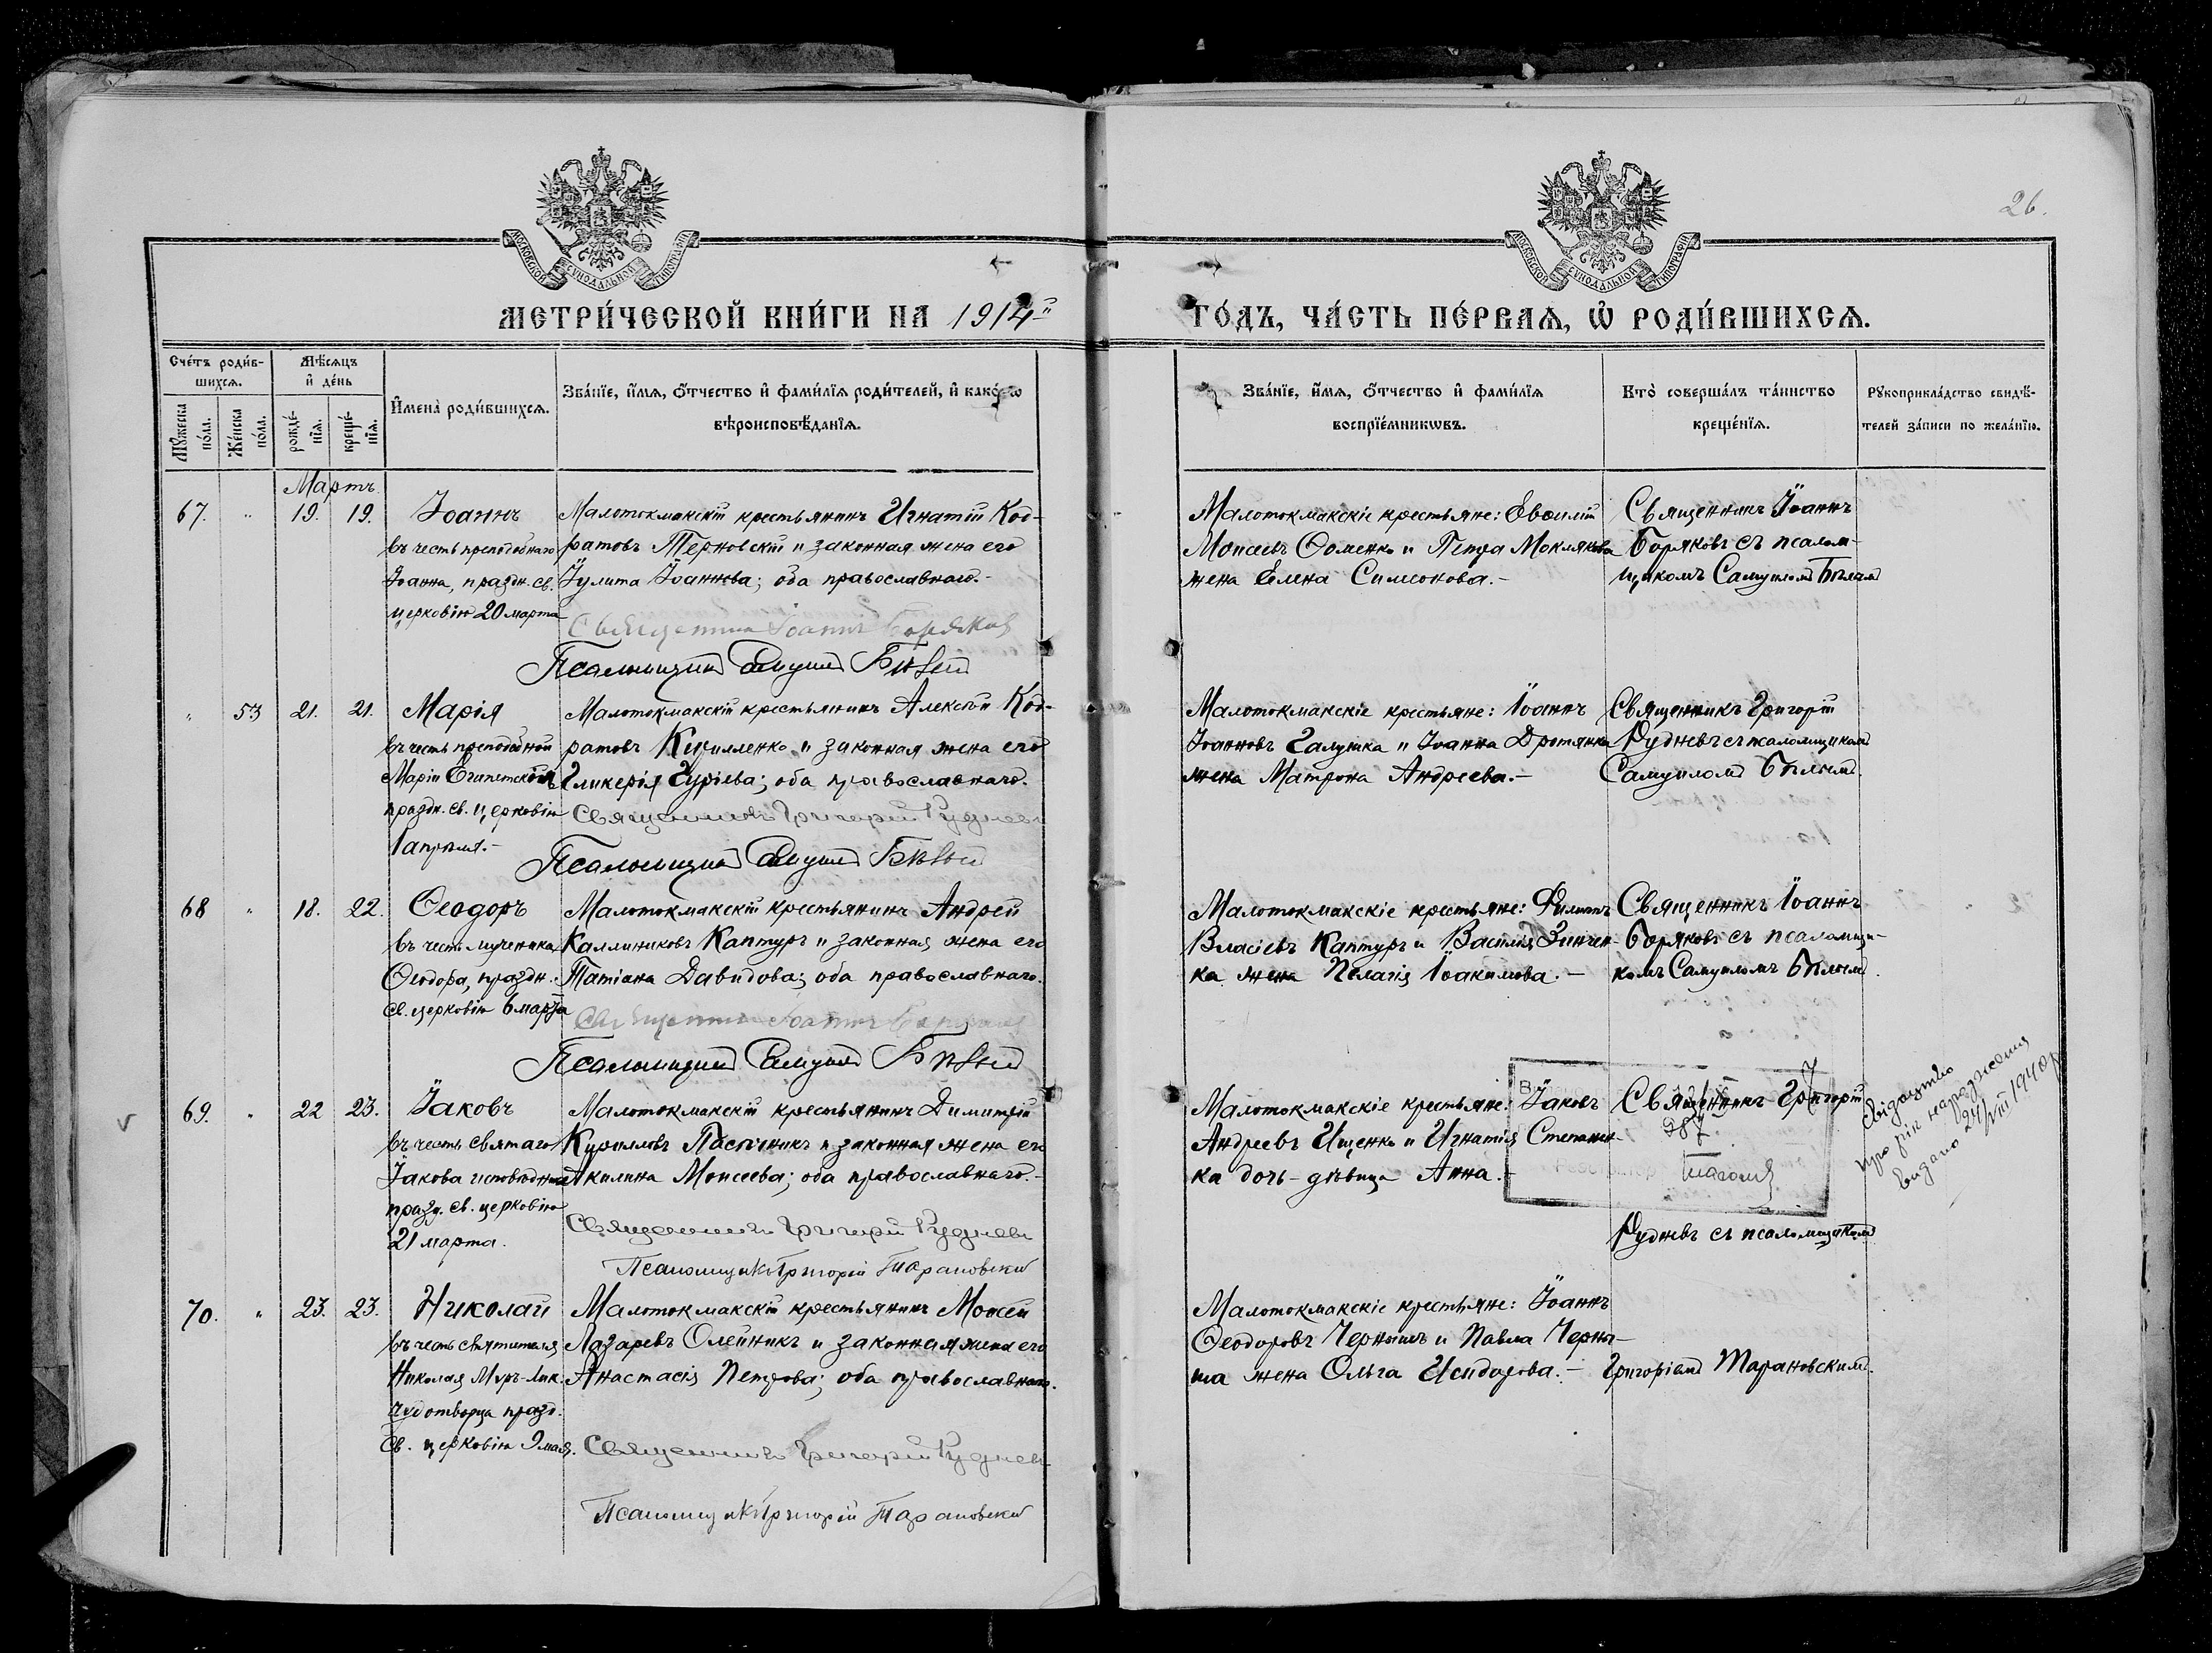 26.
МОСКОВСКОЙ СУНОДАЛЬНОЙ ТИПОГРАФІИ
МОСКОВСКОЙ СУНОДАЛЬНОЙ ТИПОГРАФІИ
МЕТРИ́ЧЕСКОЙ КНИ́ГИ НА 1914й
ГО́ДЪ, ЧА́СТЬ ПЕ́РВАѦ, Ѡ РОДИ́ВШИХСѦ.
Сче́тъ роди́в-
шихся.
Мѣ́сяцъ
и де́нь
Мꙋ́жеска
по́ла.
Же́нска
по́ла.
рожде́-
нїѧ.
креще́-
нїѧ.
Имена̀ роди́вшихсѧ.
Зва́нїе, и́мѧ, о́тчество и фами́лїѧ роди́телей, и како́гѡ
вѣроисповѣ́данїѧ.
Зва́нїе, и́мѧ, о́тчество и фами́лїѧ
воспрїе́мникѡвъ.
Кто̀ соверша́лъ та́инство
креще́нїѧ.
Рꙋкоприкла́дство свидѣ́-
телей за́писи по жела́нїю.
Мартъ.
67. " 19. 19. Іоаннъ
въ честь преподобнаго
Іоанна, праздн. св.
церковію 20 марта
Малотокмакскій крестьянинъ Игнатій Код-
ратовъ Терновскій и законная жена его
Іулита Іоаннова; оба православнаго.-
Священникъ Іоаннъ Боряковъ
Псаломщикъ Самуилъ Бѣлый
Малотокмакскіе крестьяне: Евѳимій
Моисеевъ Ѳоменко и Петра Моклякова
жена Елена Симеонова.-
Священникъ Іоаннъ
Боряковъ съ псалом-
щикомъ Самуиломъ Бѣлымъ
" 53 21. 21. Марія
въ честь преподобной
Маріи Египетской
праздн. св. церковію
1 апрѣля.-
Малотокмакскій крестьянинъ Алексѣй Код-
ратовъ Кирилленко и законная жена его
Гликерія Гуріева; оба православнаго.
Священникъ Григорій Рудневъ
Псаломщикъ Самуилъ Бѣлый
Малотокмакскіе крестьяне: Іоаннъ
Іоанновъ Галушка и Іоанна Дротянка
жена Матрона Андреева.-
Священникъ Григорій
Рудневъ съ псаломщикомъ
Самуиломъ Бѣлымъ.
68 " 18. 22. Ѳеодоръ
въ честь мученика
Ѳеодора, праздн.
св. церковію 6 марта
Малотокмакскій крестьянинъ Андрей
Каллиниковъ Каптуръ и законная жена его
Татіана Давидова; оба православнаго.
Священникъ Іоаннъ Боряковъ
Псаломщикъ Самуилъ Бѣлый
Малотокмакскіе крестьяне: Филиппъ
Власіевъ Каптуръ и Василія Зинчен-
ка жена Пелагія Іоакимова.-
Священникъ Іоаннъ
Боряковъ съ псаломщи-
комъ Самуиломъ Бѣлымъ.
69. " 22 23. Іаковъ
въ честь святаго
Іакова исповѣдника
празд. св. церковію
21 марта.
Малотокмакскій крестьянинъ Димитрій
Кирилловъ Пасѣчникъ и законная жена его
Акилина Моисеева; оба православнаго.-
Священникъ Григорій Рудневъ
Псаломщикъ Григорій Тарановскій
Малотокмакскіе крестьяне: Іаковъ
Андреевъ Ищенко и Игнатія Степанен-
ка дочь-дѣвица Анна.-
Священникъ Григорій
Рудневъ съ псаломщикомъ
Григоріемъ Тарановскимъ.
свідоцтво
про рік народження
видано 24/VIII 1940р
70. " 23. 23. Николай
въ честь святителя
Николая Мѵръ-Лик.
чудотворца празд.
св. церковію 9 мая.
Малотокмакскій крестьянинъ Моисей
Лазаревъ Олейникъ и законная жена его
Анастасія Петрова; оба православнаго.
Священникъ Григорій Рудневъ
Псаломщикъ Григорій Тарановскій
Малотокмакскіе крестьяне: Іоаннъ
Ѳеодоровъ Чернышъ и Павла Черны-
ша жена Ольга Исидорова.-